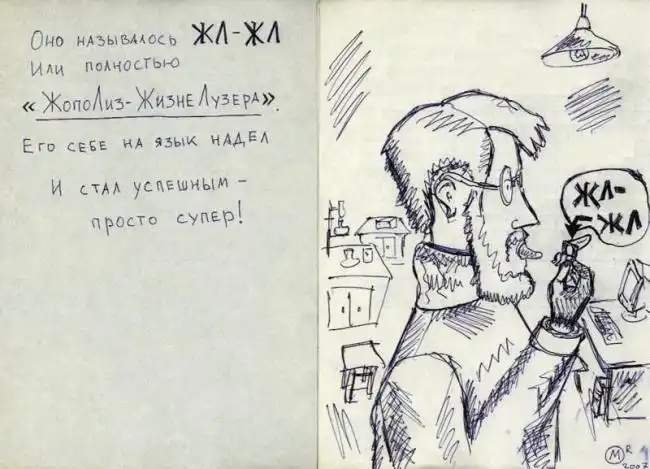 Оно называлось ЖЛ-ЖЛ
Или полностью
«ЖопоЛиз-ЖизнеЛузера».
Его себе на язык надел
И стал успешным –
просто супер!
ЖЛ-
ЖЛ
M R
2007